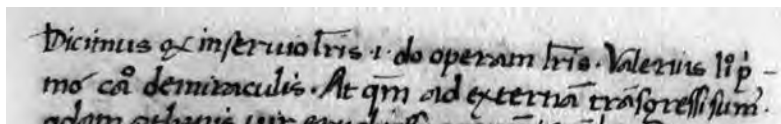 Dicimus qc inseruio lr̄is .i. do operam lr̄is. Valerius li° pͥ-
mo ca° demiraculis. At qm̄ ad externā trāsgressi sum᾿.